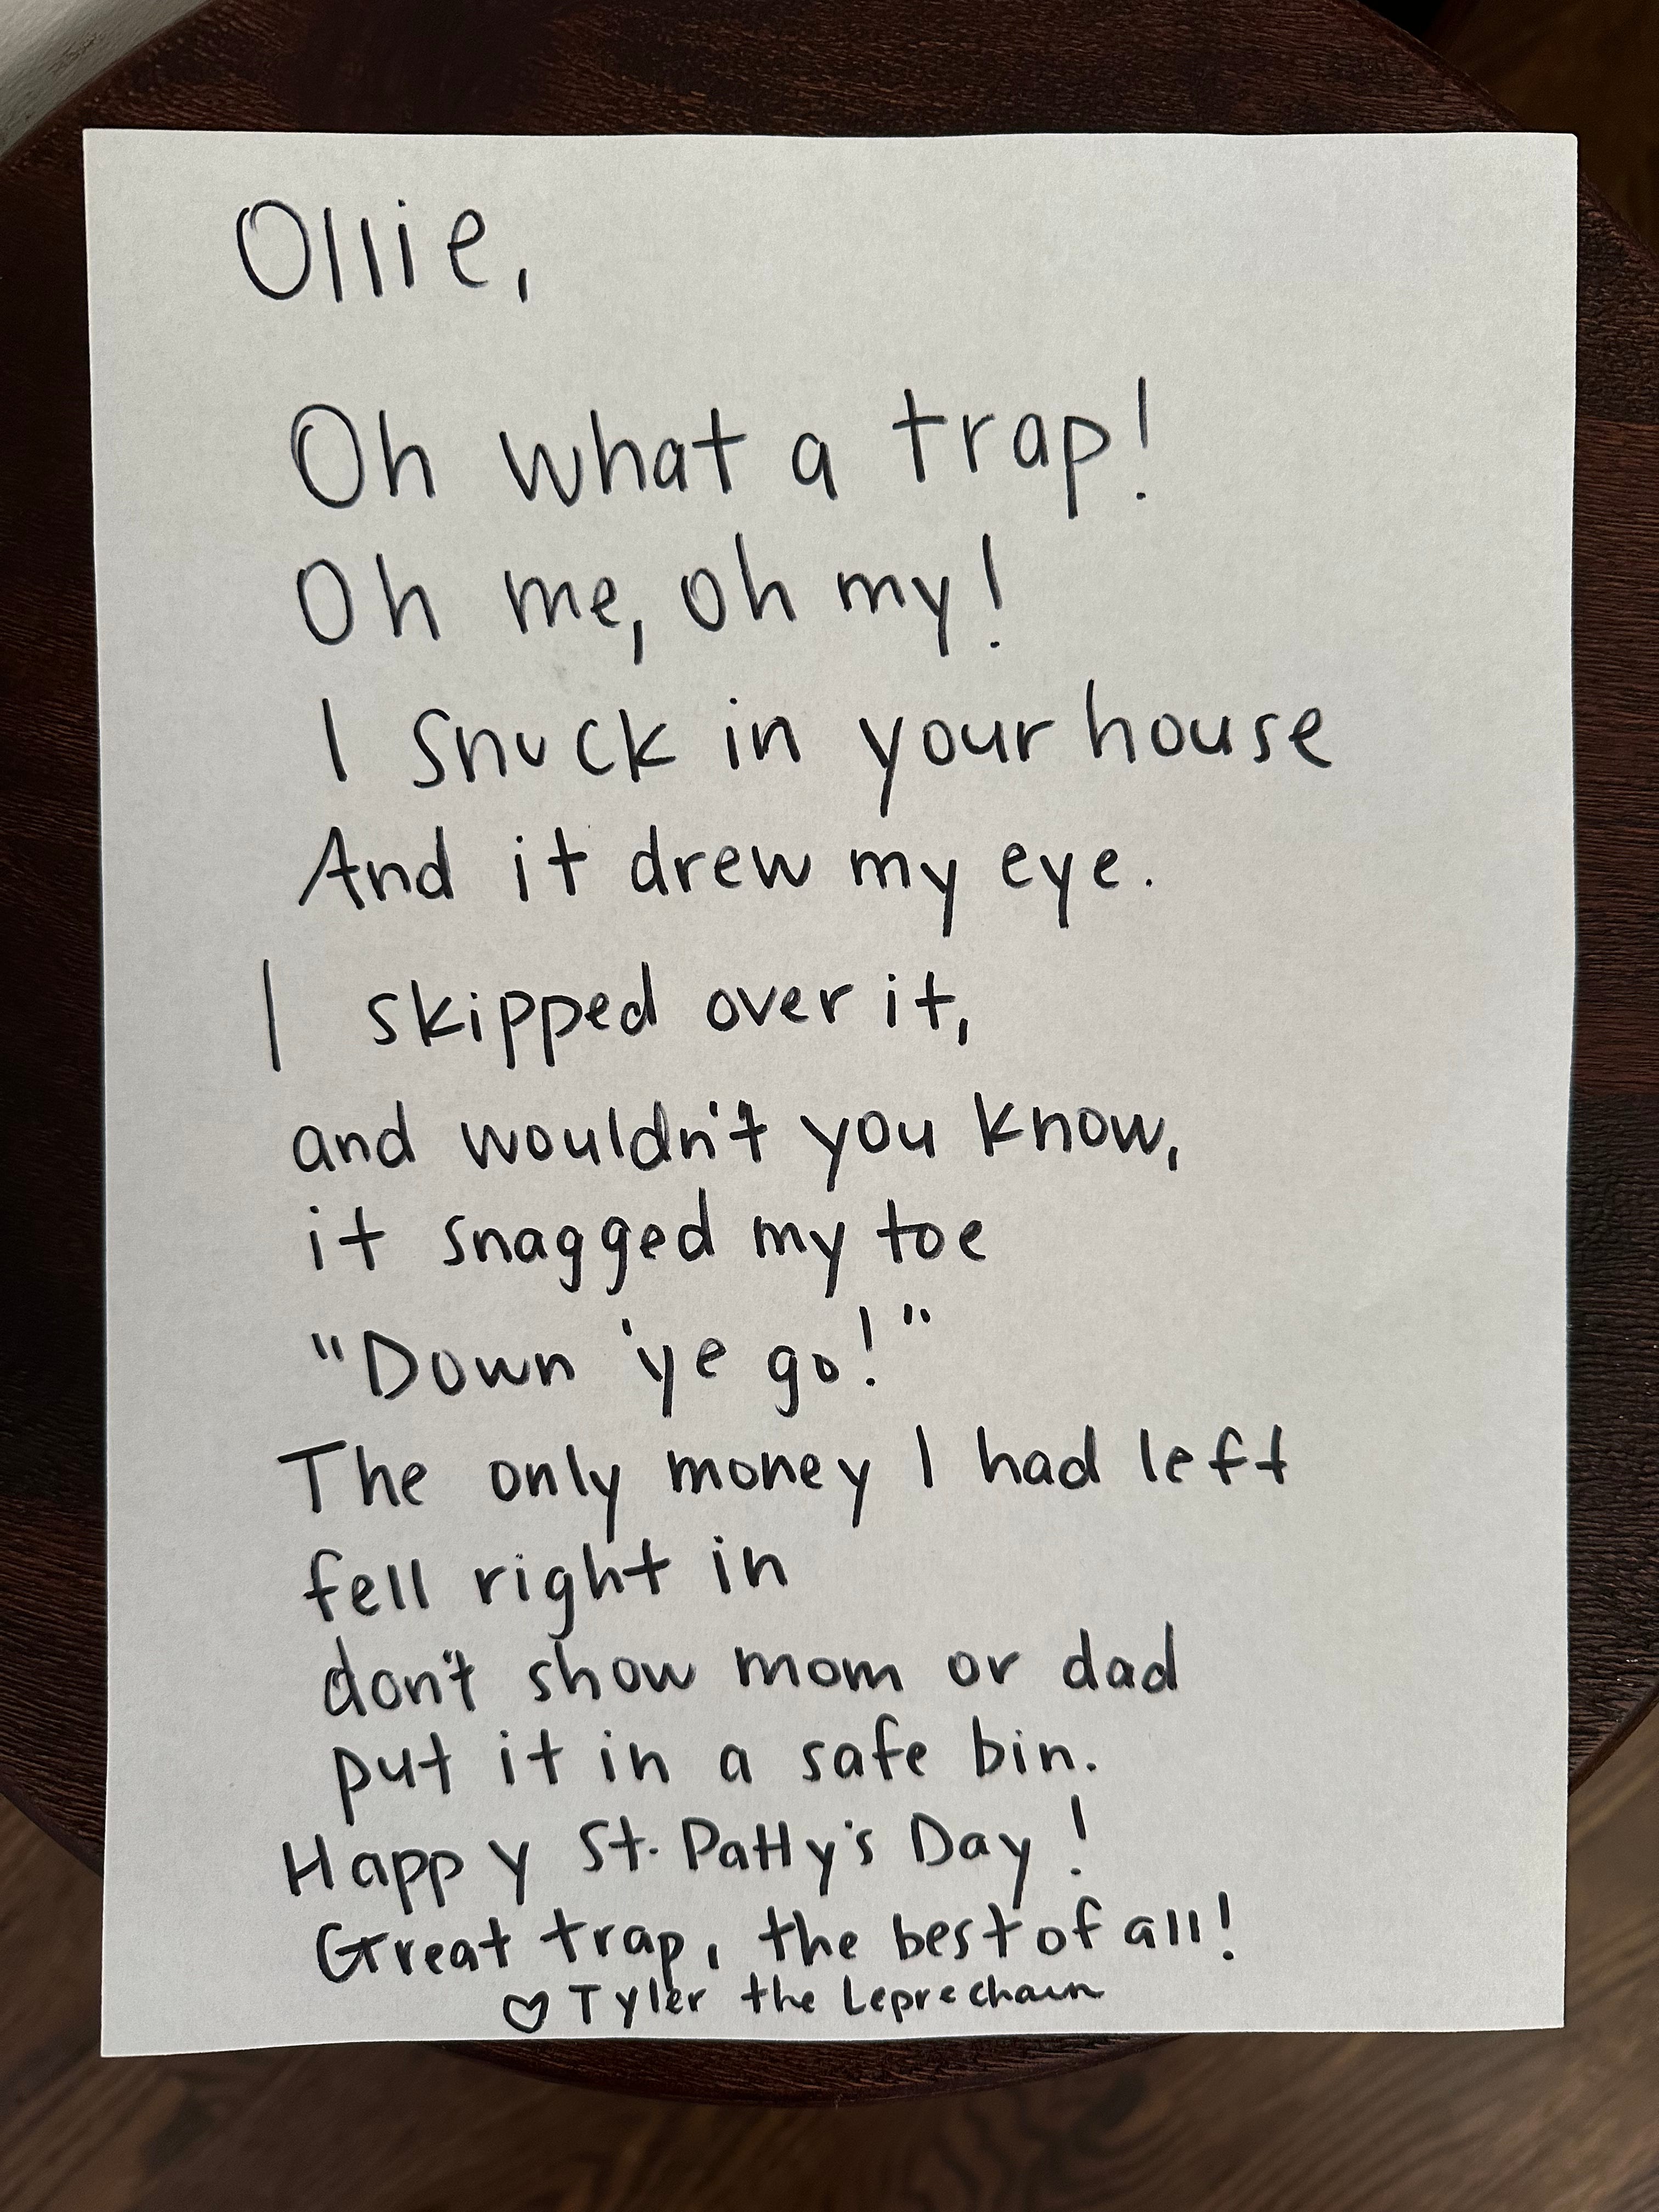 Ollie,
Oh what a trap!
Oh me, oh my!
I snuck in your house
And it drew my eye.
I skipped over it,
and wouldn't you know,
it snagged my toe
"Down 'ye go!"
The only money I had left
fell right in
don't show mom or dad
put it in a safe bin.
Happy St. Patty's Day!
Great trap, the best of all!
♡ Tyler the Leprechaun